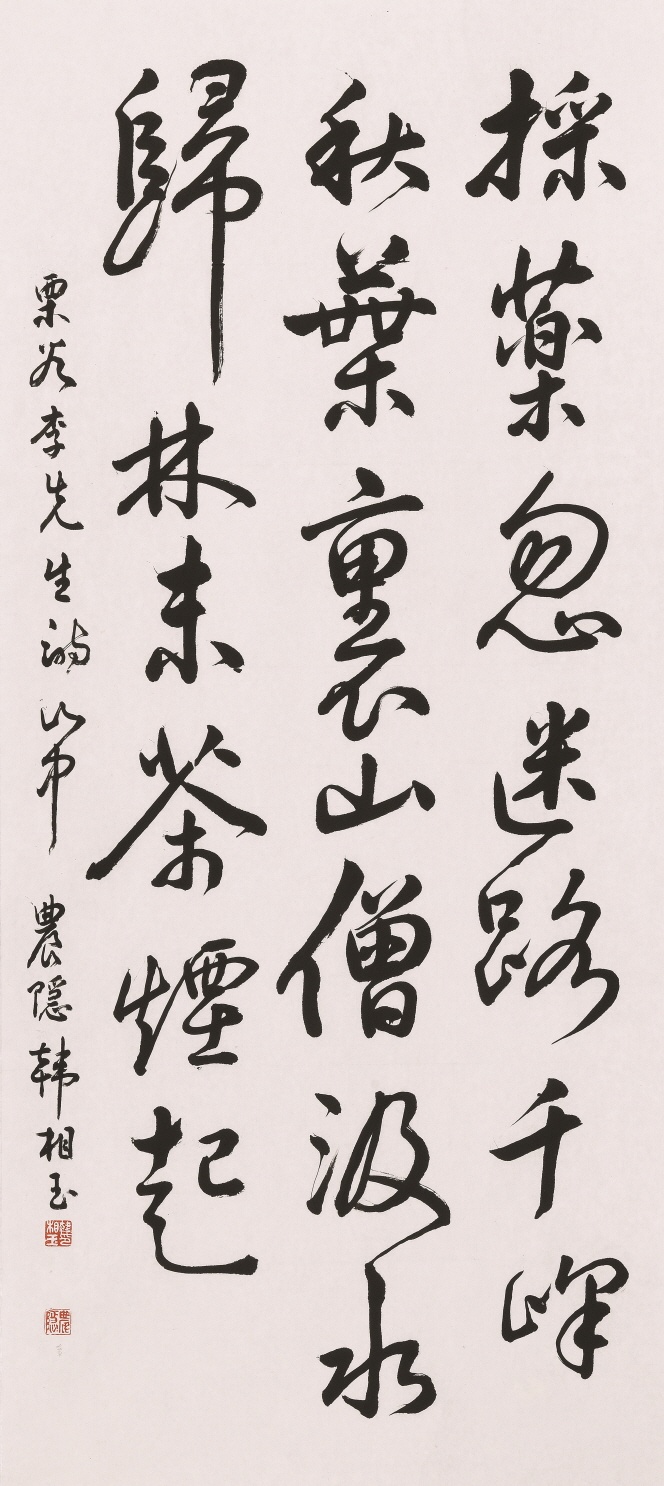 採藥忽迷路千峰
秋葉裏山僧汲水
歸林末茶煙起
栗谷李先生詩山中 農隱韓相玉
農隱